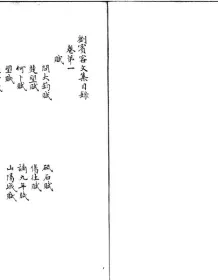 劉賓客文集目錄
卷第一
賦
問大鈞賦
砥石賦
楚望賦
傷往賦
何卜賦
謫九年賦
望賦
山陽城賦